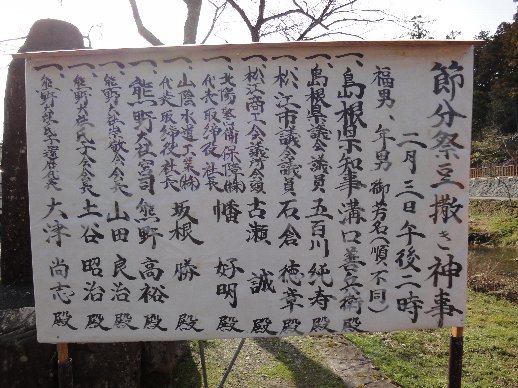 節分祭豆撒き神事
二月三日午後二時
福男、年男御芳名(順不同)
一、島根県知事 溝口善兵衛殿
一、島根県議会議員 五百川純寿殿
一、松江市議会議員 石倉徳章殿
一、松江商工会議所会頭 古瀬誠殿
一、北陽警備保障㈱
代表取締役社長 幡好明殿
一、山陰水道工業㈱
代表取締役社長 坂根勝殿
一、熊野大社宮司 熊野高裕殿
一、熊野大社崇敬会会長 山田良治殿
一、熊野大社氏子会会長 土谷昭治殿
一、熊野大社 大澤尚志殿